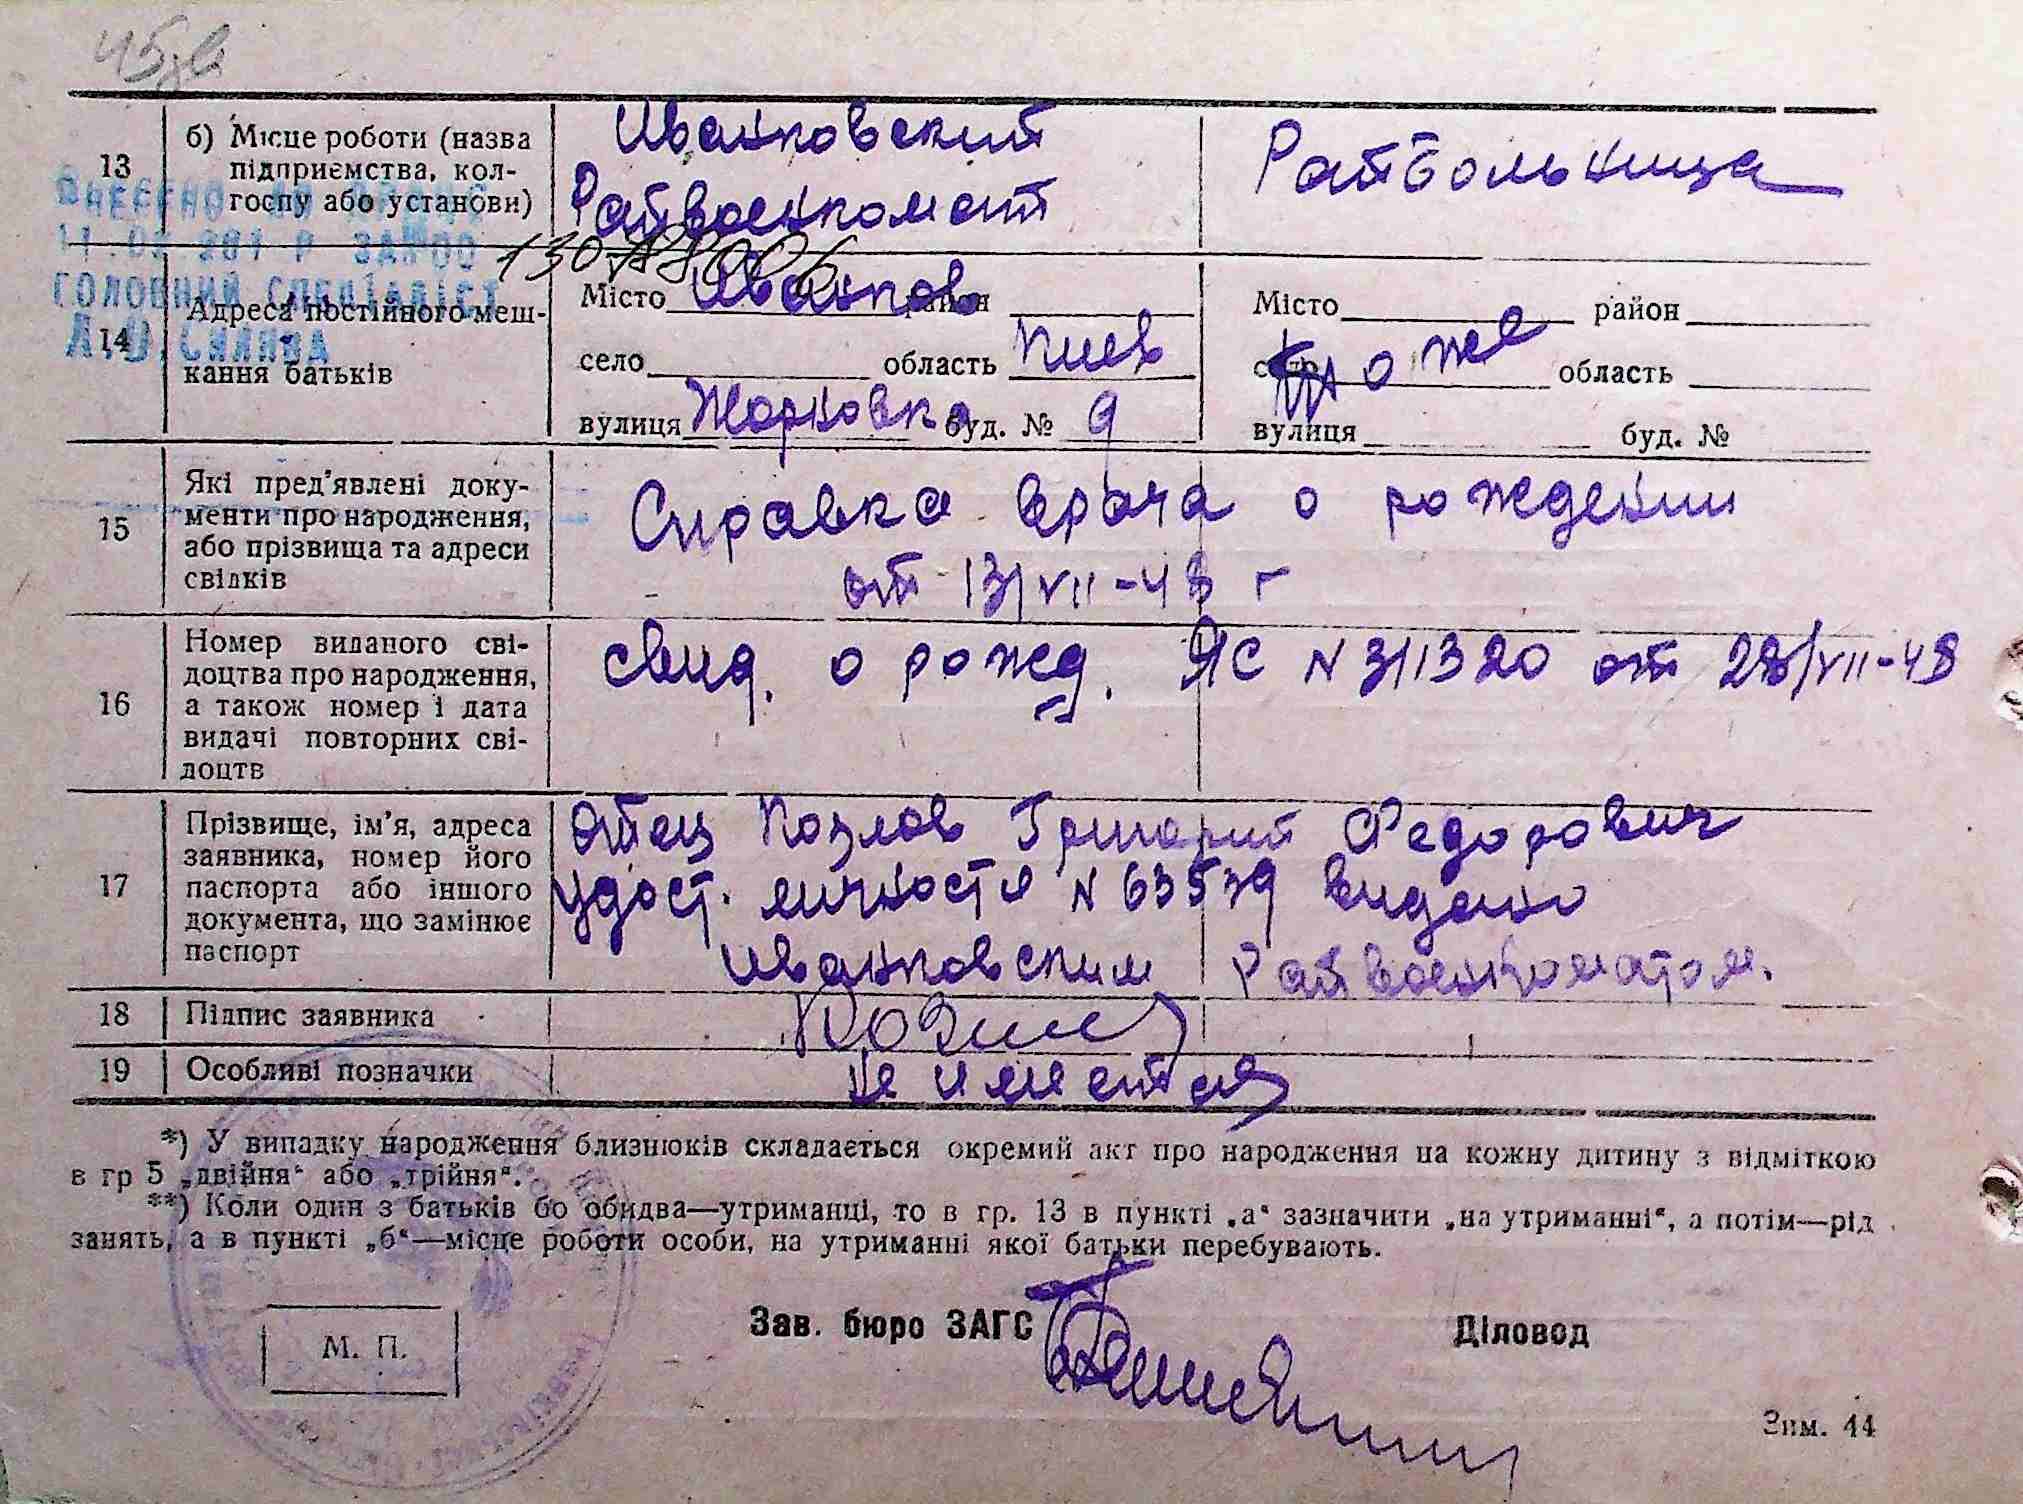 45
13 б) Місце роботи (назва підприємства, колгоспу або установи)
Иванковский
Райвоенкомат
Райбольница
ВНЕСЕНО
ГОЛОВНИЙ СПЕЦІАЛІСТ
14 Адреса постійного мешкання батьків
Місто Иванков район
село область Киев
вулиця буд. № 9
Місто район
село тоже область
вулиця буд. №
15 Які пред'явлені доку-
менти про народження,
або прізвища та адреси
свідків
Справка врача о рождении
от 13/VII-48 г
16 Номер виданого сві-
доцтва про народження,
а також номер і дата
видачі повторних сві-
доцтв
свид. о рожд. ЯС N 311320 от 28/VII-48
17 Прізвище, ім'я, адреса
заявника, номер його
паспорта або іншого
документа, що замінює
паспорт
отец Козлов Григорий Федорович
удост. личности N 63579 видано
Иванковским Райвоенкоматом.
18 Підпис заявника
19 Особливі позначки
не имеется
*) У випадку народження близнюків складається окремий акт про народження на кожну дитину з відміткою
в гр 5 „двійня“ або „трійня“.
**) Коли один з батьків бо обидва—утриманці, то в гр. 13 в пункті „а“ зазначити „на утриманні“, а потім—рід
занять, а в пункті „б“—місце роботи особи, на утриманні якої батьки перебувають.
М. П.
Зав. бюро ЗАГС
Діловод
Зим. 44